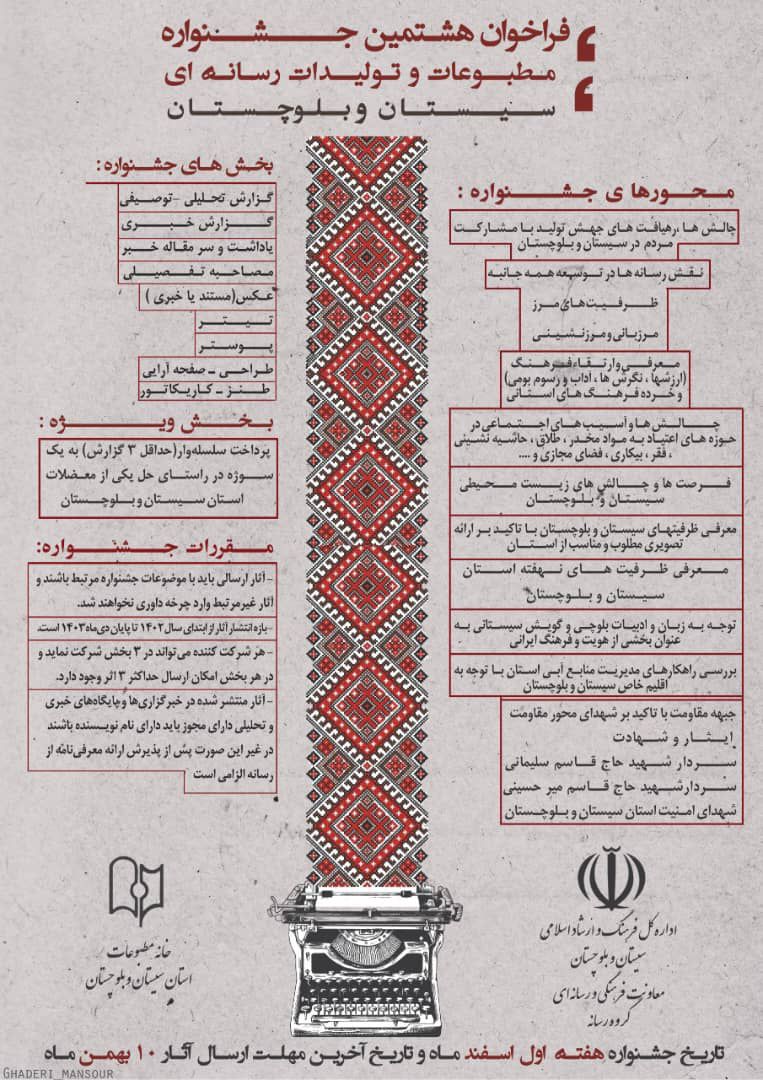 فراخوان هشتمین جشنواره
مطبوعات و تولیدات رسانه ای
سیستان و بلوچستان
محورها ی جشنواره :
چالش ها ،رهیافت های جهش تولید با مشارکت
مردم در سیستان و بلوچستان
نقش رسانه ها در توسعه همه جانبه
ظرفیت‌های مرز
مرزبانی و مرزنشینی
معرفی و ارتقاء فرهنگ
(ارزشها ، نگرش ها ، اداب و رسوم بومی)
و خرده فرهنگ های استانی
چالش ها و آسیب های اجتماعی در
حوزه های اعتیاد به مواد مخدر ، طلاق ، حاشیه نشینی
، فقر ، بیکاری ، فضای مجازی و ....
فرصت ها و چالش های زیست محیطی
سیستان و بلوچستان
معرفی ظرفیتهای سیستان و بلوچستان با تاکید بر ارائه
تصویری مطلوب و مناسب از استان
معرفی ظرفیت های نهفته استان
سیستان و بلوچستان
توجه به زبان و ادبیات بلوچی و گویش سیستانی به
عنوان بخشی از هویت و فرهنگ ایرانی
بررسی راهکارهای مدیریت منابع آبی استان با توجه به
اقلیم خاص سیستان و بلوچستان
جبهه مقاومت با تاکید بر شهدای محور مقاومت
ایثار و شهادت
سردار شهید حاج قاسم سلیمانی
سردار شهید حاج قاسم میر حسینی
شهدای امنیت استان سیستان و بلوچستان
بخش های جشنواره :
گزارش تحلیلی -توصیفی
گزارش خبری
یاداشت و سر مقاله خبر
مصاحبه تفصیلی
عکس(مستند یا خبری )
تیتر
پوستر
طراحی - صفحه آرایی
طنز - کاریکاتور
بخش ویژه :
پرداخت سلسله‌وار(حداقل ۳ گزارش) به یک
سوژه در راستای حل یکی از معضلات
استان سیستان و بلوچستان
مقررات جشنواره:
- آثار ارسالی باید با موضوعات جشنواره مرتبط باشند و
آثار غیرمرتبط وارد چرخه داوری نخواهند شد.
-بازه انتشار آثار از ابتدای سال ۱۴۰۲ تا پایان دی‌ماه ۱۴۰۳ است.
- هر شرکت کننده می‌تواند در ۳ بخش شرکت نماید و
در هر بخش امکان ارسال حداکثر ۳ اثر وجود دارد.
- آثار منتشر شده در خبرگزاری‌ها و پایگاه‌های خبری
و تحلیلی دارای مجوز باید دارای نام نویسنده باشند
در غیر این صورت پس از پذیرش ارائه معرفی‌نامه از
رسانه الزامی است
اداره کل فرهنگ و ارشاد اسلامی
سیستان و بلوچستان
معاونت فرهنگی و رسانه ای
گروه رسانه
خانه مطبوعات
استان سیستان و بلوچستان
تاریخ جشنواره هفته اول اسفند ماه و تاریخ آخرین مهلت ارسال آثار ۱۰ بهمن ماه
Ghaderi_mansour